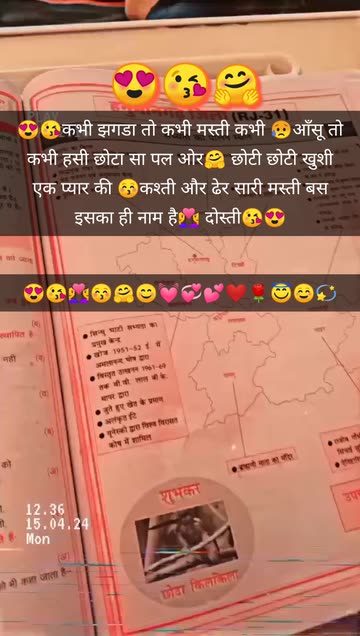 😍😘🤗
(RJ-31)
😍😘कभी झगडा तो कभी मस्ती कभी 😥आँसू तो
कभी हसी छोटा सा पल ओर🤗 छोटी छोटी खुशी
एक प्यार की 😚कश्ती और ढेर सारी मस्ती बस
इसका ही नाम है👩‍❤️‍👩 दोस्ती😘😍
😍😘👩‍❤️‍👩😚🤗😊💓💞💕❤️🌹😇😊💫
● सिन्धु घाटी सभ्यता का
प्रमुख केन्द्र
● खोज 1951-52 ई. में
अमलानन्द घोष द्वारा
● विस्तृत उत्खनन 1961-69
तक बी.बी. लाल बी.के.
थापर द्वारा
● जुते हुए खेत के प्रमाण
● अलंकृत ईंटें
● यूनेस्को द्वारा विश्व विरासत
कोष में शामिल
● ब्राह्मणी माता का मंदिर
नहीं
(ब)
(अ)
को
(द)
(स)
12.36
15.04.24
Mon
शुभंकर
छोटा किलकिला
(अ)
को भी कहा जाता है-